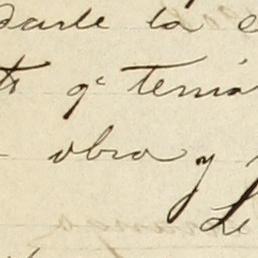 darle la
qe tenia
obra y
Le